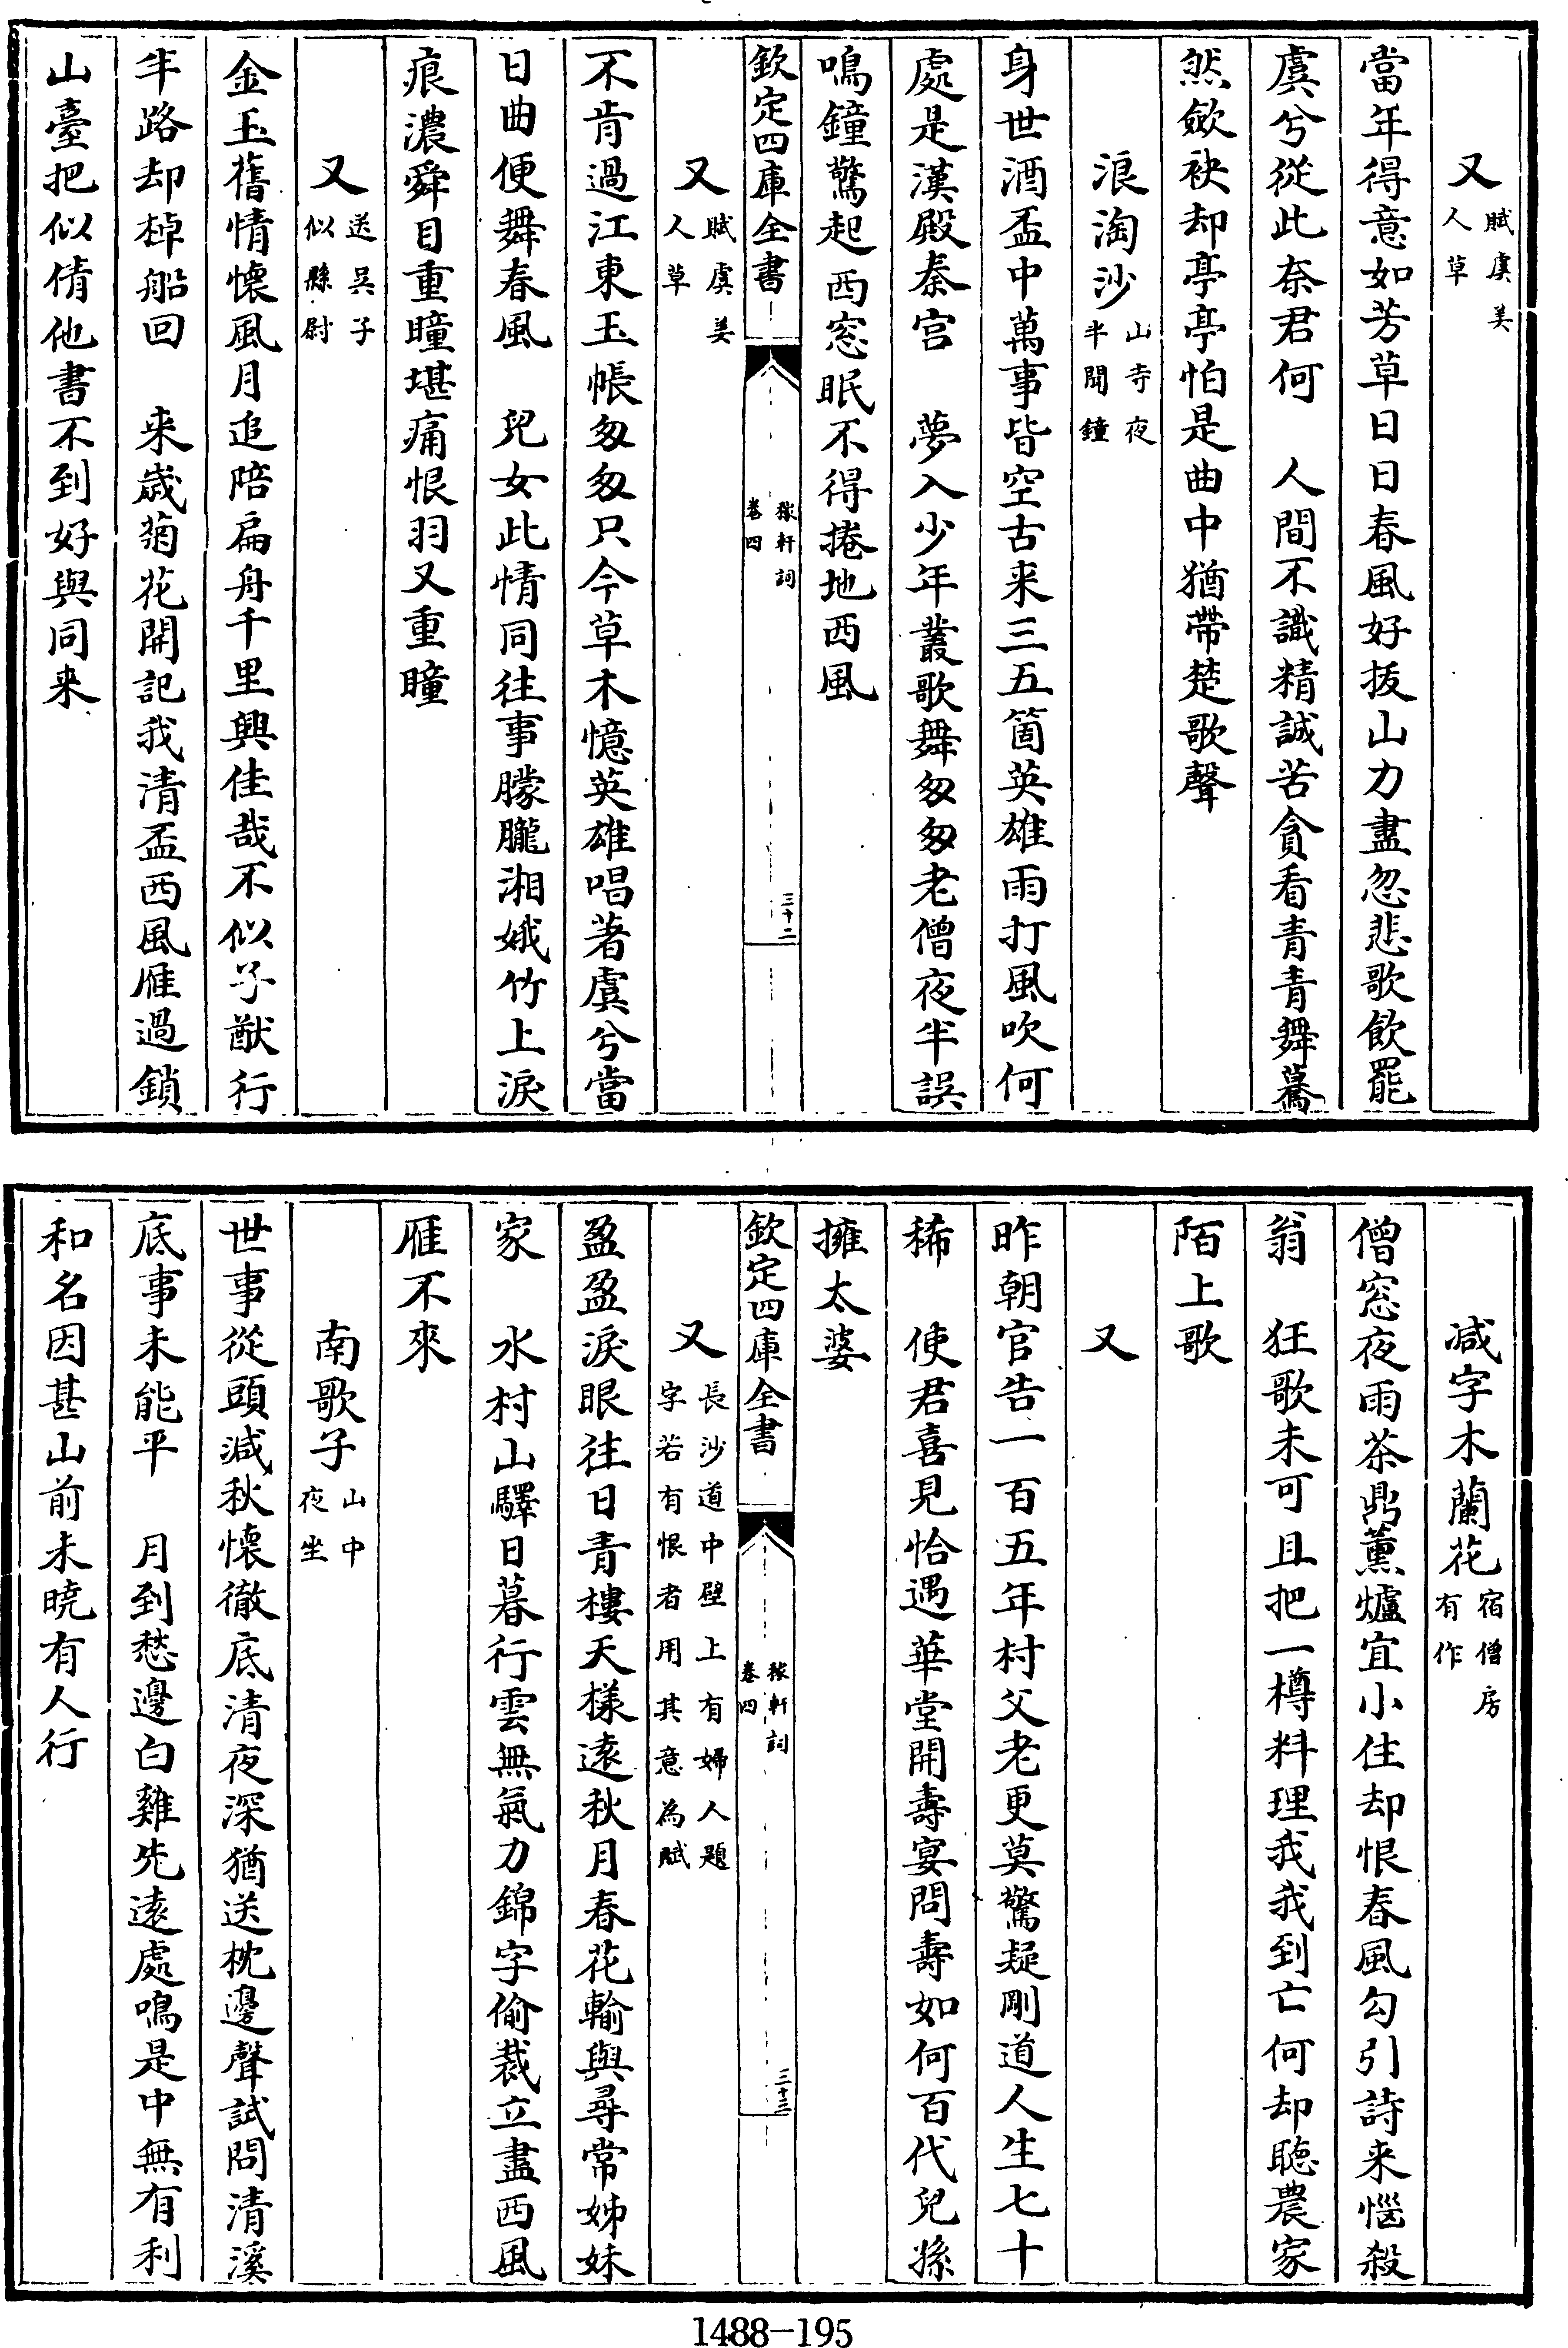 又賦虞美人草
當年得意如芳草日日春風好拔山力盡忽悲歌飲罷
虞兮從此奈君何　人間不識精誠苦貪看青青舞驀
然歛袂却亭亭怕是曲中猶帶楚歌聲
浪淘沙山寺夜半聞鐘
身世酒盃中萬事皆空古来三五箇英雄雨打風吹何
處是漢殿秦宫　夢入少年叢歌舞匆匆老僧夜半誤
鳴鐘驚起西窓眠不得捲地西風
欽定四庫全書　稼軒詞卷四　三十二
又賦虞美人草
不肯過江東玉帳匆匆只今草木憶英雄唱著虞兮當
日曲便舞春風　兒女此情同往事朦朧湘娥竹上淚
痕濃舜目重瞳堪痛恨羽又重瞳
又送吳子似縣尉
金玉舊情懷風月追陪扁舟千里興佳哉不似子猷行
半路却棹船回　来歲菊花開記我清盃西風雁過鎖
山臺把似倩他書不到好與同来
減字木蘭花宿僧房有作
僧窓夜雨茶鼎薰爐宜小住却恨春風勾引詩来惱殺
翁　狂歌未可且把一樽料理我我到亡何却聽農家
陌上歌
又
昨朝官告一百五年村父老更莫驚疑剛道人生七十
稀　使君喜見恰遇華堂開壽宴問壽如何百代兒孫
擁太婆
欽定四庫全書　稼軒詞卷四　三十三
又長沙道中壁上有婦人題字若有恨者用其意為賦
盈盈淚眼往日青樓天樣逺秋月春花輸與尋常姊妹
家　水村山驛日暮行雲無氣力錦字偷裁立盡西風
雁不來
南歌子山中夜坐
世事從頭減秋懷徹底清夜深猶送枕邊聲試問清溪
底事未能平　月到愁邊白雞先逺處鳴是中無有利
和名因甚山前未曉有人行
1488-195